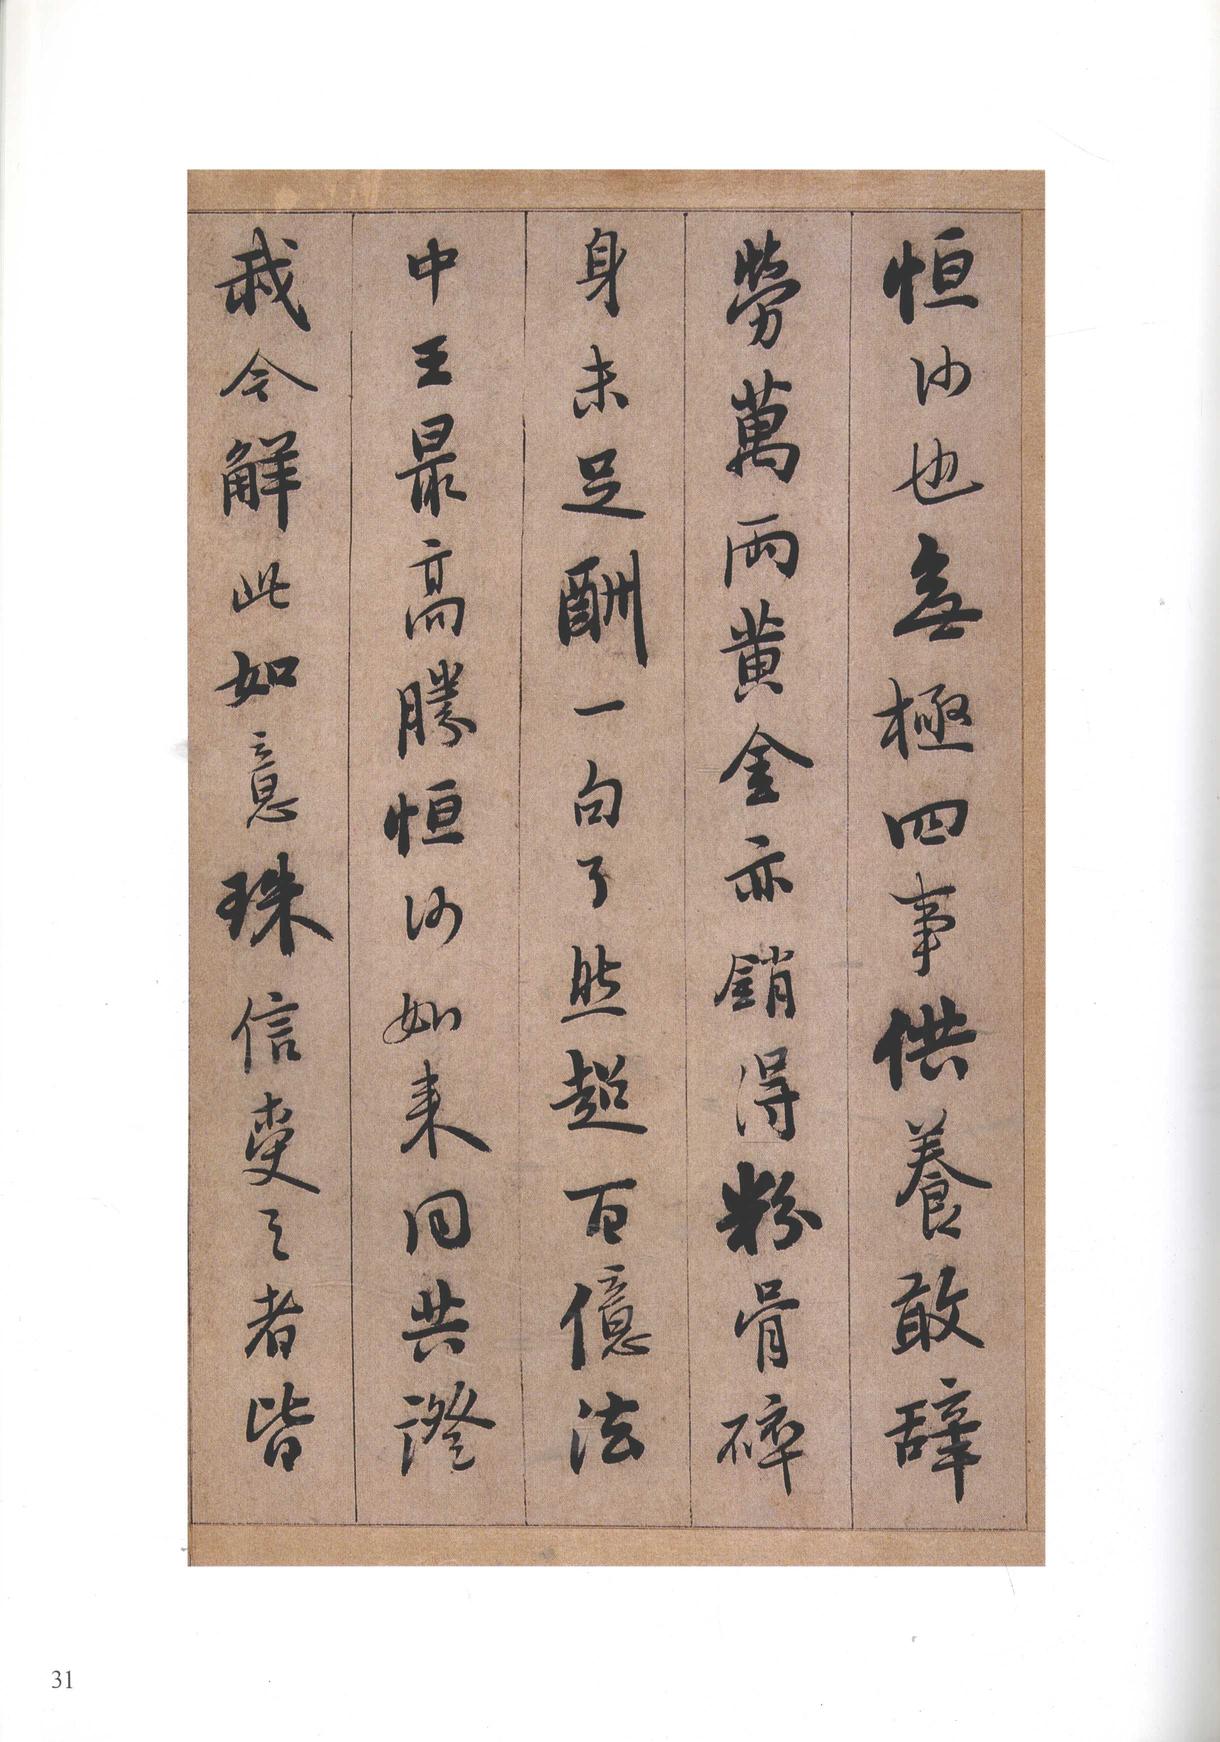 恒沙也無極四事供養敢辞
勞萬兩黄金亦銷得粉骨碎
身未足酬一句了然超百億法
中王最高勝恒沙如来同共證
我今解此如意珠信受之者皆
31